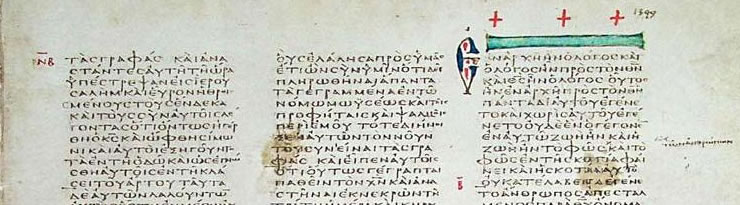 1349
ΝΒ
ΤΑΣΓΡΑΦΑΣ ΚΑΙΑΝΑ
ΣΤΑΝΤΕΣΑΥΤΗΤΗΩΡΑ
ΥΠΕΣΤΡΕΨΑΝΕΙΣΙΕΡΟΥ
ΣΑΛΗΜΚΑΙΕΥΡΟΝΗΘΡΟΙ
ΣΜΕΝΟΥΣΤΟΥΣΕΝΔΕΚΑ
ΚΑΙΤΟΥΣΣΥΝΑΥΤΟΙΣΛΕ
ΓΟΝΤΑΣΟΤΙΟΝΤΩΣΗΓΕΡ
ΘΗΟΚΣΚΑΙΩΦΘΗΣΙΜΩ
ΝΙΚΑΙΑΥΤΟΙΕΞΗΓΟΥΝ
ΤΑΕΝΤΗΟΔΩΚΑΙΩΣΕΓΝΩ
ΣΘΗΑΥΤΟΙΣΕΝΤΗΚΛΑ
ΣΕΙΤΟΥΑΡΤΟΥΤΑΥΤΑ
ΔΕΑΥΤΩΝΛΑΛΟΥΝΤΩ
ΟΥΣΕΛΑΛΗΣΑΠΡΟΣΥΜΑΣ
ΕΤΙΩΝΣΥΝΥΜΙΝΟΤΙΔΕΙ
ΠΛΗΡΩΘΗΝΑΙΠΑΝΤΑ
ΤΑΓΕΓΡΑΜΜΕΝΑΕΝΤΩ
ΝΟΜΩΜΩΥΣΕΩΣΚΑΙΤΟΙΣ
ΠΡΟΦΗΤΑΙΣΚΑΙΨΑΛΜΟΙΣ
ΠΕΡΙΕΜΟΥΤΟΤΕΔΙΗΝΟΙ
ΞΕΝΑΥΤΩΝΤΟΝΝΟΥΝ
ΤΟΥΣΥΝΕΙΝΑΙΤΑΣΓΡΑ
ΦΑΣ ΚΑΙΕΙΠΕΝΑΥΤΟΙΣ
ΟΤΙΟΥΤΩΣΓΕΓΡΑΠΤΑΙ
ΠΑΘΕΙΝΤΟΝΧΝΚΑΙΑΝΑ
ΣΤΗΝΑΙΕΚΝΕΚΡΩΝΤΗ
ΕΝΑΡΧΗΗΝΟΛΟΓΟΣΚΑΙ
ΟΛΟΓΟΣΗΝΠΡΟΣΤΟΝΘΝ
ΚΑΙΘΣΗΝΟΛΟΓΟΣ ΟΥΤΟΣ
ΗΝΕΝΑΡΧΗΠΡΟΣΤΟΝΘΝ
ΠΑΝΤΑΔΙΑΥΤΟΥΕΓΕΝΕ
ΤΟΚΑΙΧΩΡΙΣΑΥΤΟΥΕΓΕ
ΝΕΤΟΟΥΔΕΕΝΟΓΕΓΟΝΕΝ
ΕΝΑΥΤΩΖΩΗΗΝΚΑΙΗ
ΖΩΗΗΝΤΟΦΩΣ ΚΑΙΤΟ
των ανθρωπων
ΦΩΣΕΝΤΗΣΚΟΤΙΑΦΑΙ
ΝΕΙΚΑΙΗΣΚΟΤΙΑΑΥΤΟ
Β
ΟΥΚΑΤΕΛΑΒΕΝΕΓΕΝΕ
ΤΟΑΝΘΡΩΠΟΣΑΠΕΣΤΑΛ